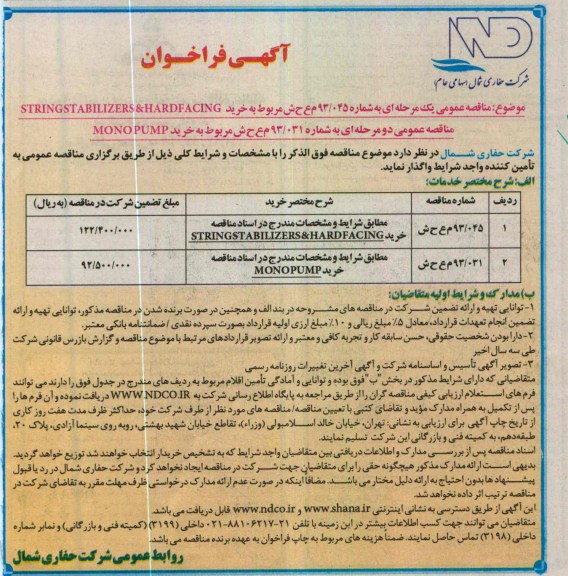 آگهی فراخوان
NDC
شرکت حفاری شمال (سهامی عام)
موضوع: مناقصه عمومی یک مرحله ای به شماره ۹۳/۰۴۵م ع ح ش مربوط به خرید STRINGSTABILIZERS&HARDFACING
مناقصه عمومی دو مرحله ای به شماره ۹۳/۰۳۱م ع ح ش مربوط به خرید MONOPUMP
شرکت حفاری شمال در نظر دارد موضوع مناقصه فوق الذکر را با مشخصات و شرایط کلی ذیل از طریق برگزاری مناقصه عمومی به
تأمین کننده واجد شرایط واگذار نماید.
الف: شرح مختصر خدمات:
ردیف شماره مناقصه شرح مختصر خرید مبلغ تضمین شرکت در مناقصه (به ریال)
۱ ۹۳/۰۴۵م ع ح ش مطابق شرایط و مشخصات مندرج در اسناد مناقصه ۱۲۲/۴۰۰/۰۰۰
خرید STRINGSTABILIZERS&HARDFACING
۲ ۹۳/۰۳۱م ع ح ش مطابق شرایط و مشخصات مندرج در اسناد مناقصه ۹۲/۵۰۰/۰۰۰
خرید MONOPUMP
ب) مدارک و شرایط اولیه متقاضیان:
۱- توانایی تهیه و ارائه تضمین شرکت در مناقصه های مشروحه در بند الف و همچنین در صورت برنده شدن در مناقصه مذکور، توانایی تهیه و ارائه
تضمین انجام تعهدات قرارداد، معادل ۵٪ مبلغ ریالی و ۱۰٪ مبلغ ارزی اولیه قرارداد بصورت سپرده نقدی / ضمانتنامه بانکی معتبر.
۲- دارا بودن شخصیت حقوقی، حسن سابقه کار و تجربه کافی و معتبر و ارائه تصویر قراردادهای مرتبط با موضوع مناقصه و گزارش بازرس قانونی شرکت
طی سه سال اخیر
۳- تصویر آگهی تأسیس و اساسنامه شرکت و آگهی آخرین تغییرات روزنامه رسمی
متقاضیانی که دارای شرایط مذکور در بخش "ب" فوق بوده و توانایی و آمادگی تأمین اقلام مربوط به ردیف های مندرج در جدول فوق را دارند می توانند
فرم های استعلام ارزیابی کیفی مناقصه گران را از طریق مراجعه به پایگاه اطلاع رسانی شرکت به WWW.NDCO.IR دریافت نموده و آن فرم ها را
پس از تکمیل به همراه مدارک مؤید و تقاضای کتبی با تعیین مناقصه/ مناقصه های مورد نظر از طرف شرکت خود، حداکثر ظرف مدت هفت روز کاری
از تاریخ چاپ آگهی برای ارزیابی به نشانی: تهران، خیابان خالد اسلامبولی (وزراء)، تقاطع خیابان شهید بهشتی، روبه روی سینما آزادی، پلاک ۲۰،
طبقه دهم، به کمیته فنی و بازرگانی این شرکت تسلیم نمایند.
اسناد مناقصه پس از بررسی مدارک و اطلاعات دریافتی بین متقاضیان واجد شرایط که به تشخیص خریدار انتخاب خواهند شد توزیع خواهد گردید.
بدیهی است ارائه مدارک مذکور هیچگونه حقی را برای متقاضیان جهت شرکت در مناقصه ایجاد نخواهد کرد و شرکت حفاری شمال در رد یا قبول
پیشنهاد ها بدون احتیاج به ارائه دلیل مختار می باشد. مضافاً اینکه در صورت عدم ارائه مدارک درخواستی ظرف مهلت مقرر به تقاضای شرکت در
مناقصه ترتیب اثر داده نخواهد شد.
این آگهی از طریق دسترسی به نشانی اینترنتی www.shana.ir و www.ndco.ir قابل دریافت می باشد.
متقاضیان می توانند جهت کسب اطلاعات بیشتر در این زمینه با تلفن ۲۱-۸۸۱۰۶۲۱۷-۰۲۱ داخلی (۳۱۹۹) (کمیته فنی و بازرگانی) و نمابر شماره
داخلی (۳۱۹۸) تماس حاصل نمایند. ضمناً هزینه های مربوط به چاپ فراخوان به عهده برنده مناقصه می باشد.
روابط عمومی شرکت حفاری شمال